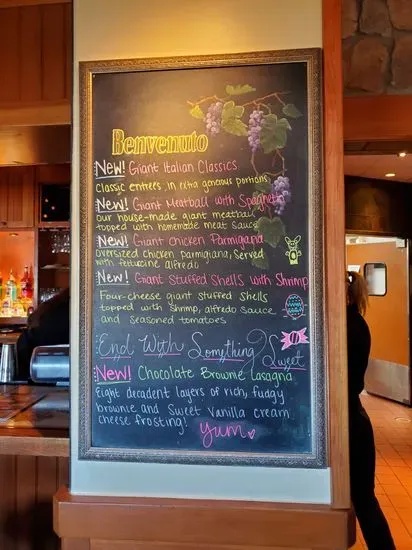 Benvenuto
New! Giant Italian Classics
Classic entrees, in extra generous portions
New! Giant Meatball with Spaghetti
our house-made giant meatball
topped with homemade meat sauce
New! Giant Chicken Parmigiana
oversized chicken parmigiana, served
with fettuccine alfredo
New! Giant Stuffed Shells with Shrimp
Four-cheese giant stuffed shells
topped with shrimp, alfredo sauce
and seasoned tomatoes
End With Something Sweet
New! Chocolate Brownie Lasagna
Eight decadent layers of rich, fudgy
brownie and sweet vanilla cream
cheese frosting!
Yum